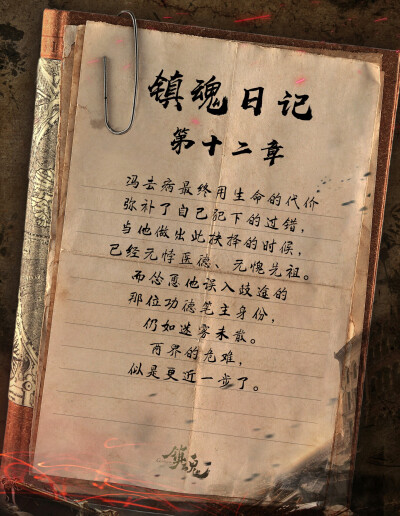 镇魂日记
第十二章
冯去病最终用生命的代价
弥补了自己犯下的过错，
当他做出此抉择的时候，
已经无悖医德、无愧先祖。
而怂恿他误入歧途的
那位功德笔主身份，
仍如迷雾未散。
两界的危难，
似是更近一步了。
镇魂